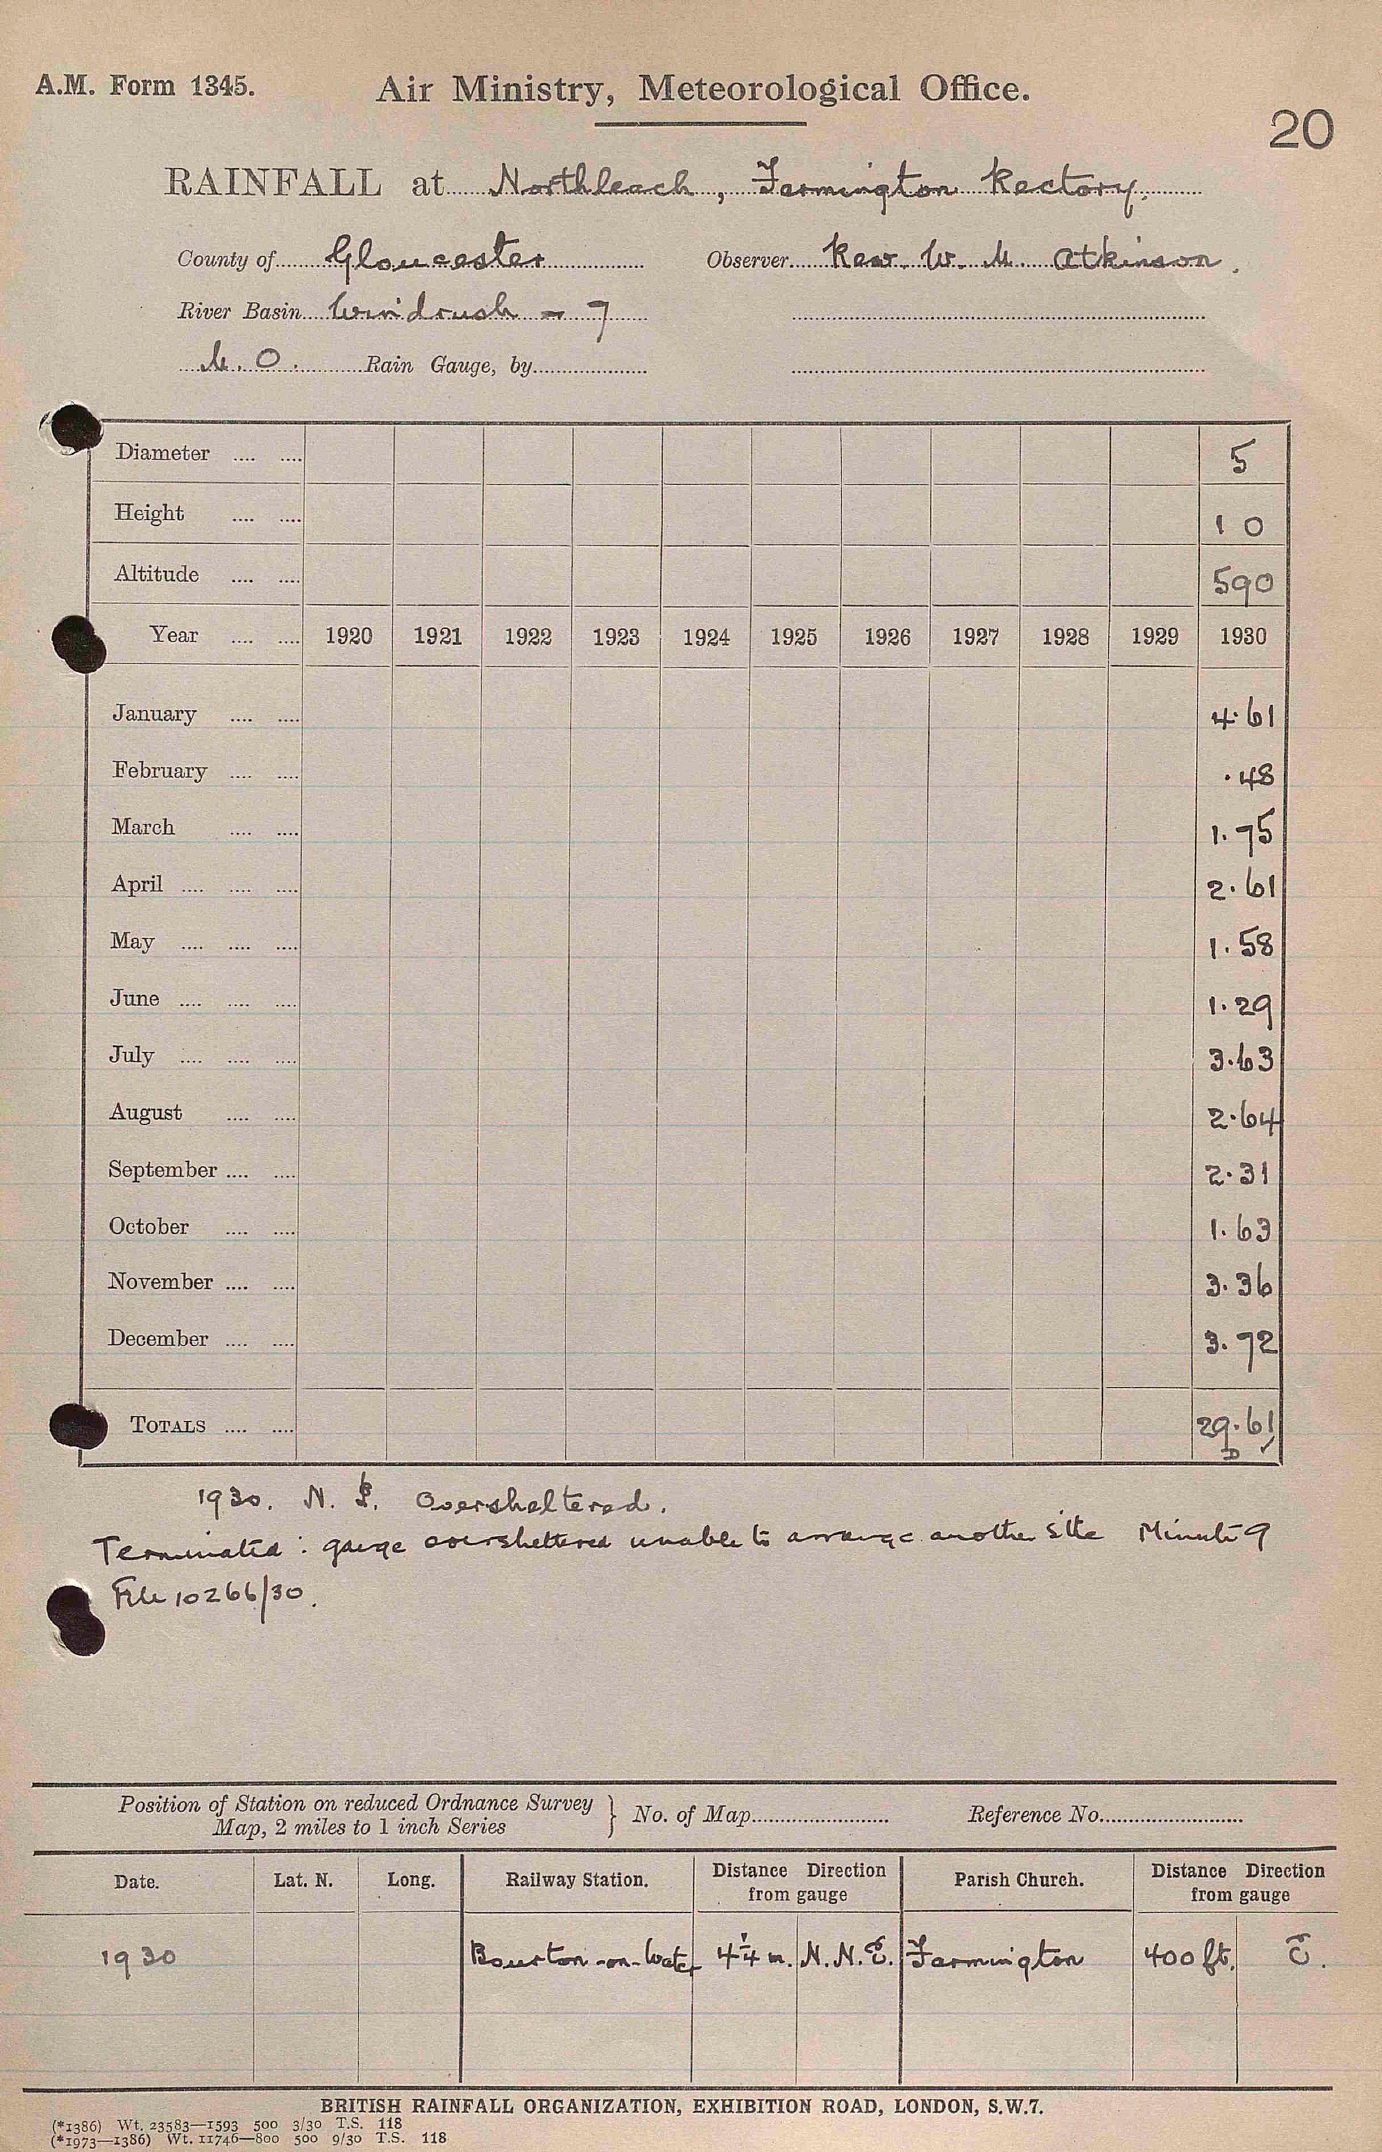 A.M. Form 1345. Air Ministry, Meteorological Office.
20
RAINFALL at Northleach, Farmington Rectory.
County of Gloucester Observer Rev. W. M. Atkinson.
River Basin Windrush - 7
M.O. Rain Gauge, by
Diameter .... .... 5
Height .... .... 10
Altitude .... .... 590
Year .... .... 1920 1921 1922 1923 1924 1925 1926 1927 1928 1929 1930
January .... .... 4.61
February .... .... .48
March .... .... 1.75
April .... .... .... 2.61
May .... .... .... 1.58
June .... .... .... 1.29
July .... .... .... 3.63
August .... .... 2.64
September .... .... 2.31
October .... .... 1.63
November .... .... 3.36
December .... .... 3.72
TOTALS .... .... 29.61
D ✓
1930. N. P. Oversheltered.
Terminated: gauge oversheltered unable to arrange another site Minute 9
File 10266/30.
Position of Station on reduced Ordnance Survey
Map, 2 miles to 1 inch Series } No. of Map Reference No.
Date. Lat. N. Long. Railway Station. Distance Direction from gauge Parish Church. Distance Direction from gauge
1930 Bourton-on-Water 4¼ m. N.N.E. Farmington 400 ft. E.
BRITISH RAINFALL ORGANIZATION, EXHIBITION ROAD, LONDON, S.W.7.
(*1386) Wt. 23583—1593 500 3/30 T.S. 118
(*1973—1386) Wt. 11746—800 500 9/30 T.S. 118